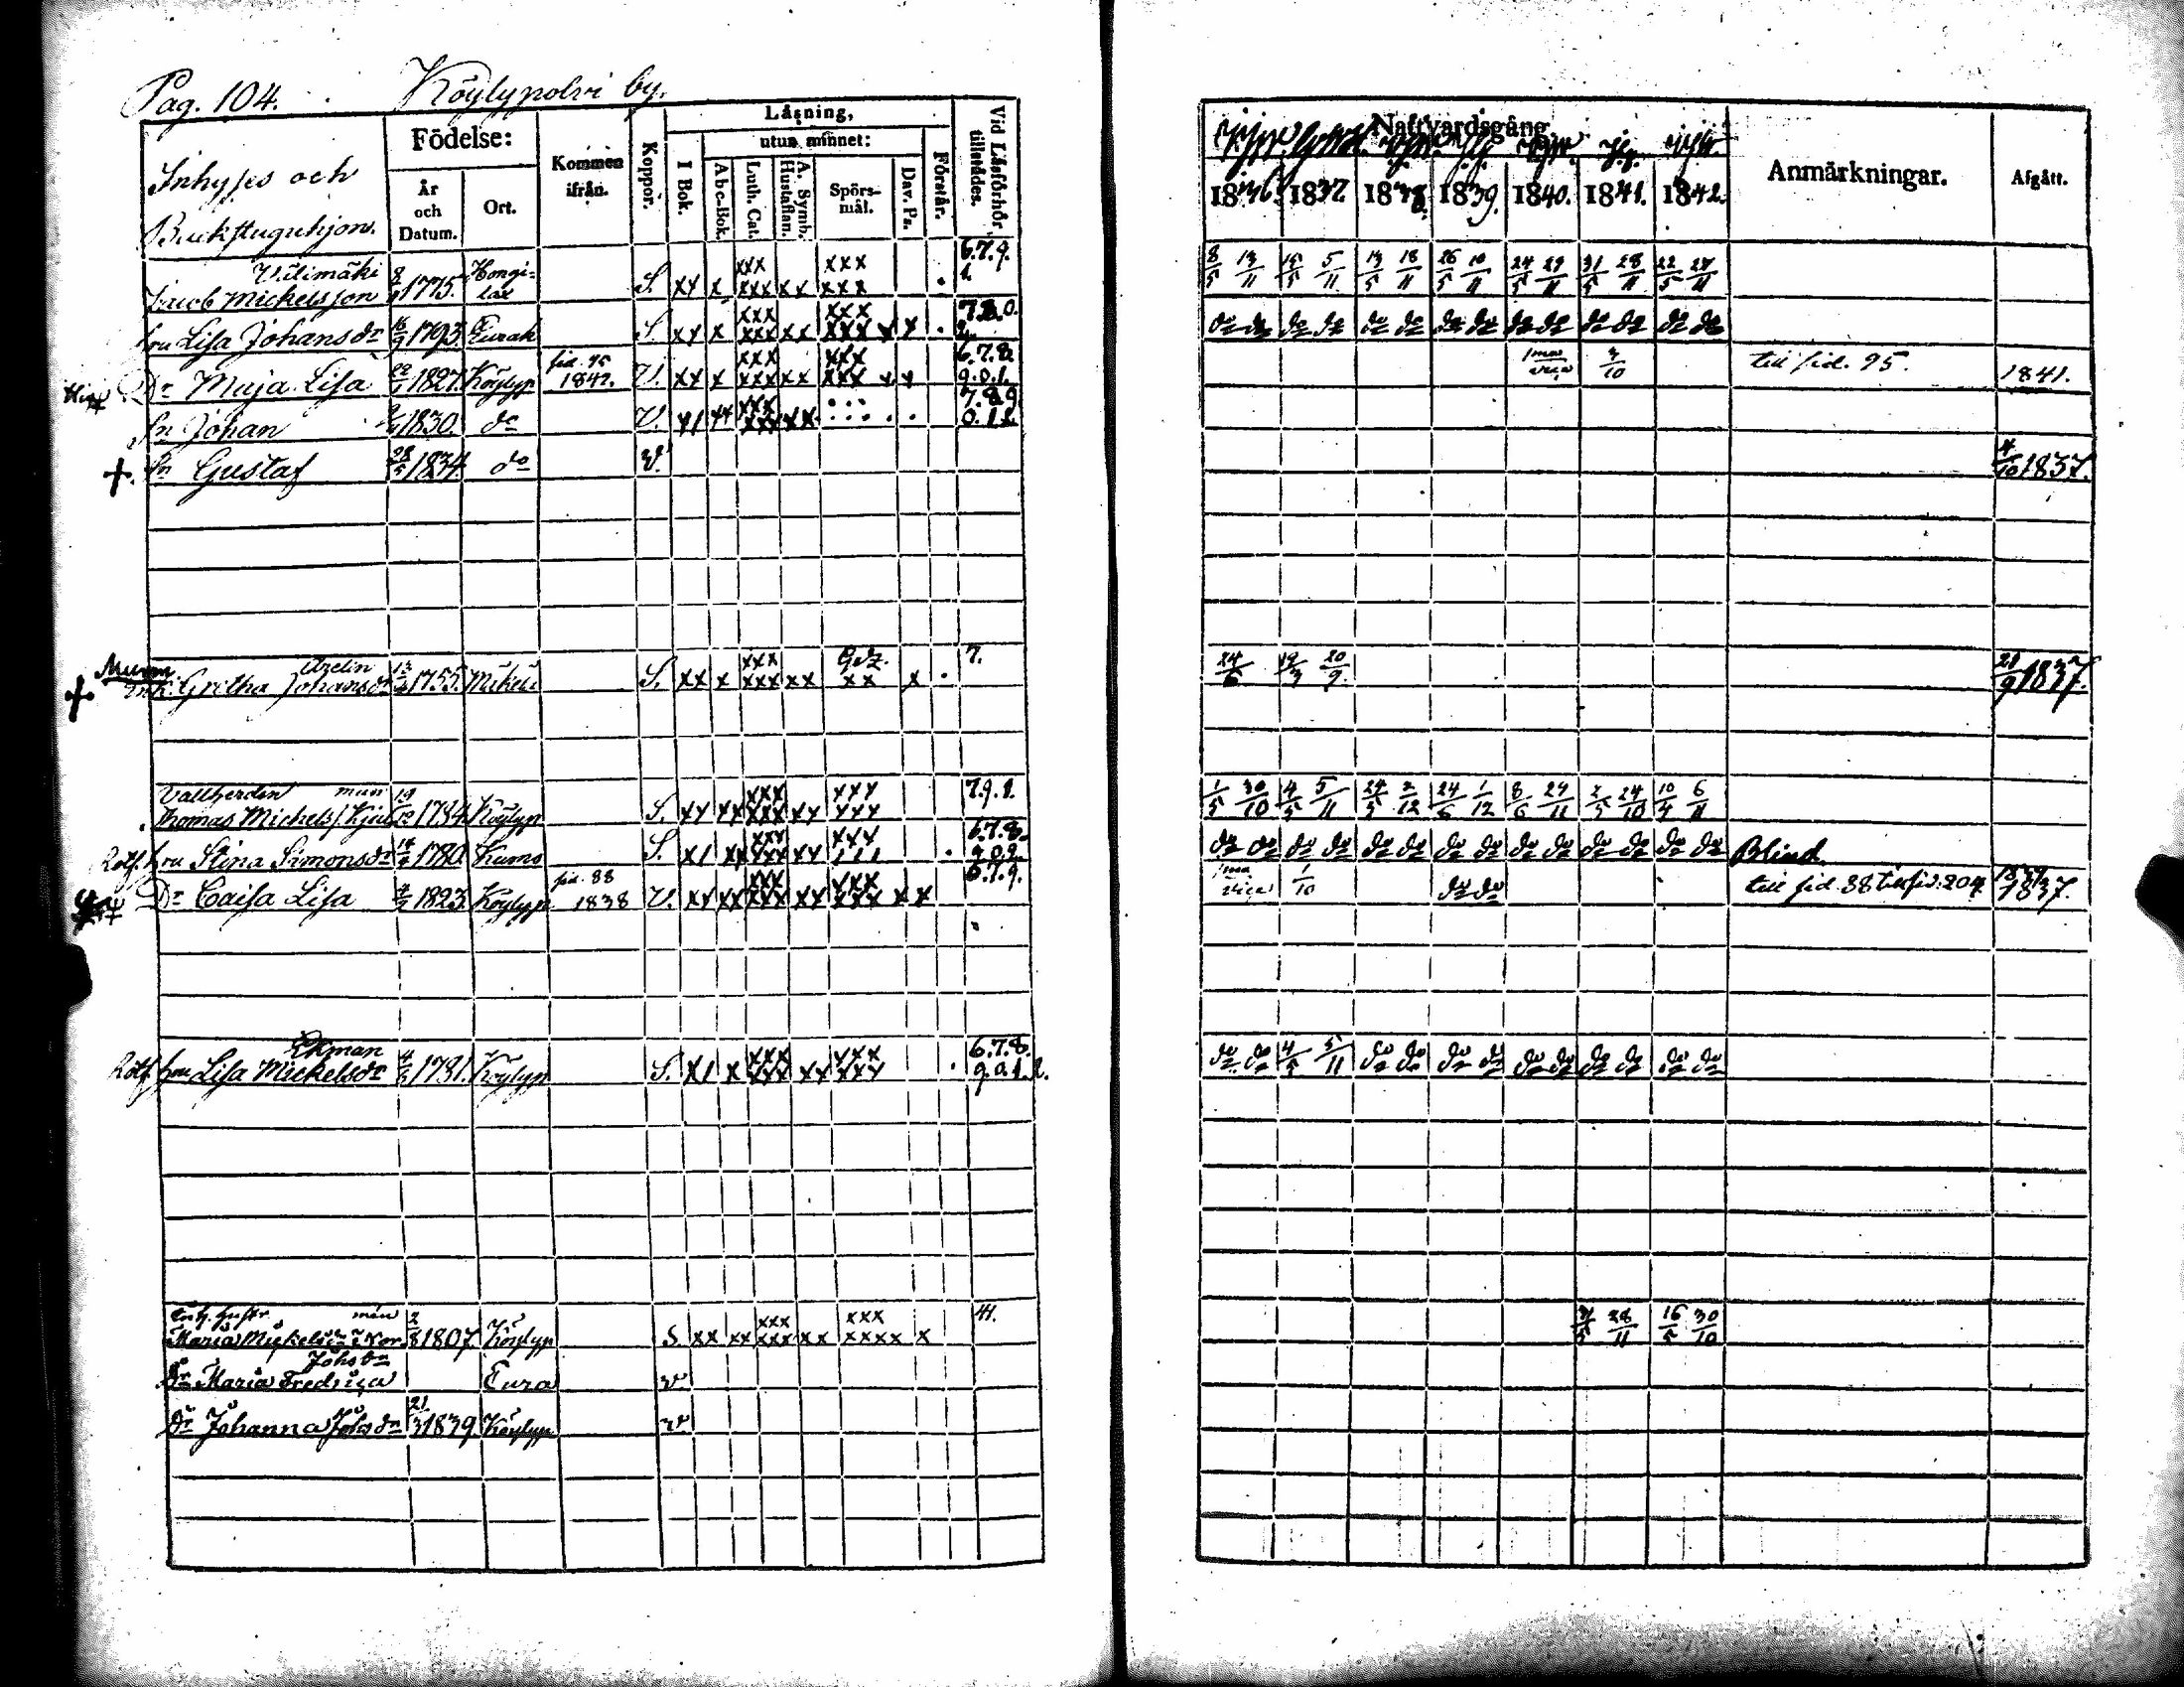 Pag. 104. Köylypolvi by.
Inhyses och Backstuguhjon.
Födelse: År och Datum. Ort. Kommen ifrån. Koppor. Läsning, I Bok. utun minnet: Abc-Bok. Luth. Cat. A. Symb. Hustaflan. Spörsmål. Dav. Ps. Förstår. Vid Läsförhör tillstädes.
Nattvardsgång 1836. 1837. 1838. 1839. 1840. 1841. 1842. Anmärkningar. Afgått.
Jacob Mickelsson 8/9 1775. Hongilax S. xx x xxx xxx xx xxx xxx 6.7.9. 1. 8/5 13/11 15/5 5/11 13/5 18/11 26/5 10/11 24/5 29/11 31/5 28/11 22/5 27/11
hru Lisa Johansdr 16/9 1793. Eurak S. xx x xxx xxx xx xxx xxx x x do do do do do do do do do do do do do do
Dr Maja Lisa 22/ 1827. Köylyp sid. 95 1842. V. xx x xxx xxx xx xxx xxx x x 6.7.8. 9.0.1. 3/10 till sid. 95. 1841.
Sn Johan 1830. do V. x1 xx xxx xxx xx 7.8.9. 0.1.2.
+ Sn Gustaf 28/5 1834. do V. 4/10 1837.
+ Enk. Gretha Johansdr 1755. S. xx x xxx xxx xx xx x 7. 24/6 19/3 20/9 21/9 1837.
Vallherden
Thomas Michels 19/12 1784. Köylyp S. xx xx xxx xxx xx xxx xxx 7.9.1. 1/5 30/10 4/5 5/11 24/5 2/12 24/6 1/12 8/6 29/11 2/5 24/10 10/4 6/11
Rotf. hru Stina Simonsdr 1780. Kumo S. x1 xx xxx xxx xx xxx 6.7.8. 9.0.2. do do do do do do do do do do do do do do Blind.
Dr Caisa Lisa 1823. Köylyp sid. 88 1838 V. xx xx xxx xxx xx xxx xxx x x 6.7.9. 1/10 do do till sid. 88 till sid. 204. 1839 1837.
Ekman
Rotf. hru Lisa Mickelsdr 4/5 1781. Köylyp S. x1 x xxx xxx xx xxx xxx 6.7.8. 9.0.1.2. do do 4/5 5/11 do do do do do do do do do do
Maria Mickelsdr 2/8 1807. Köylyp S. xx xx xxx xxx xx xxx xxxx x 41. 31/5 28/11 16/5 30/10
Johsdr
Dr Maria Fredrica Eura v
Dr Johanna Johsdr 21/3 1839 Köylyp v